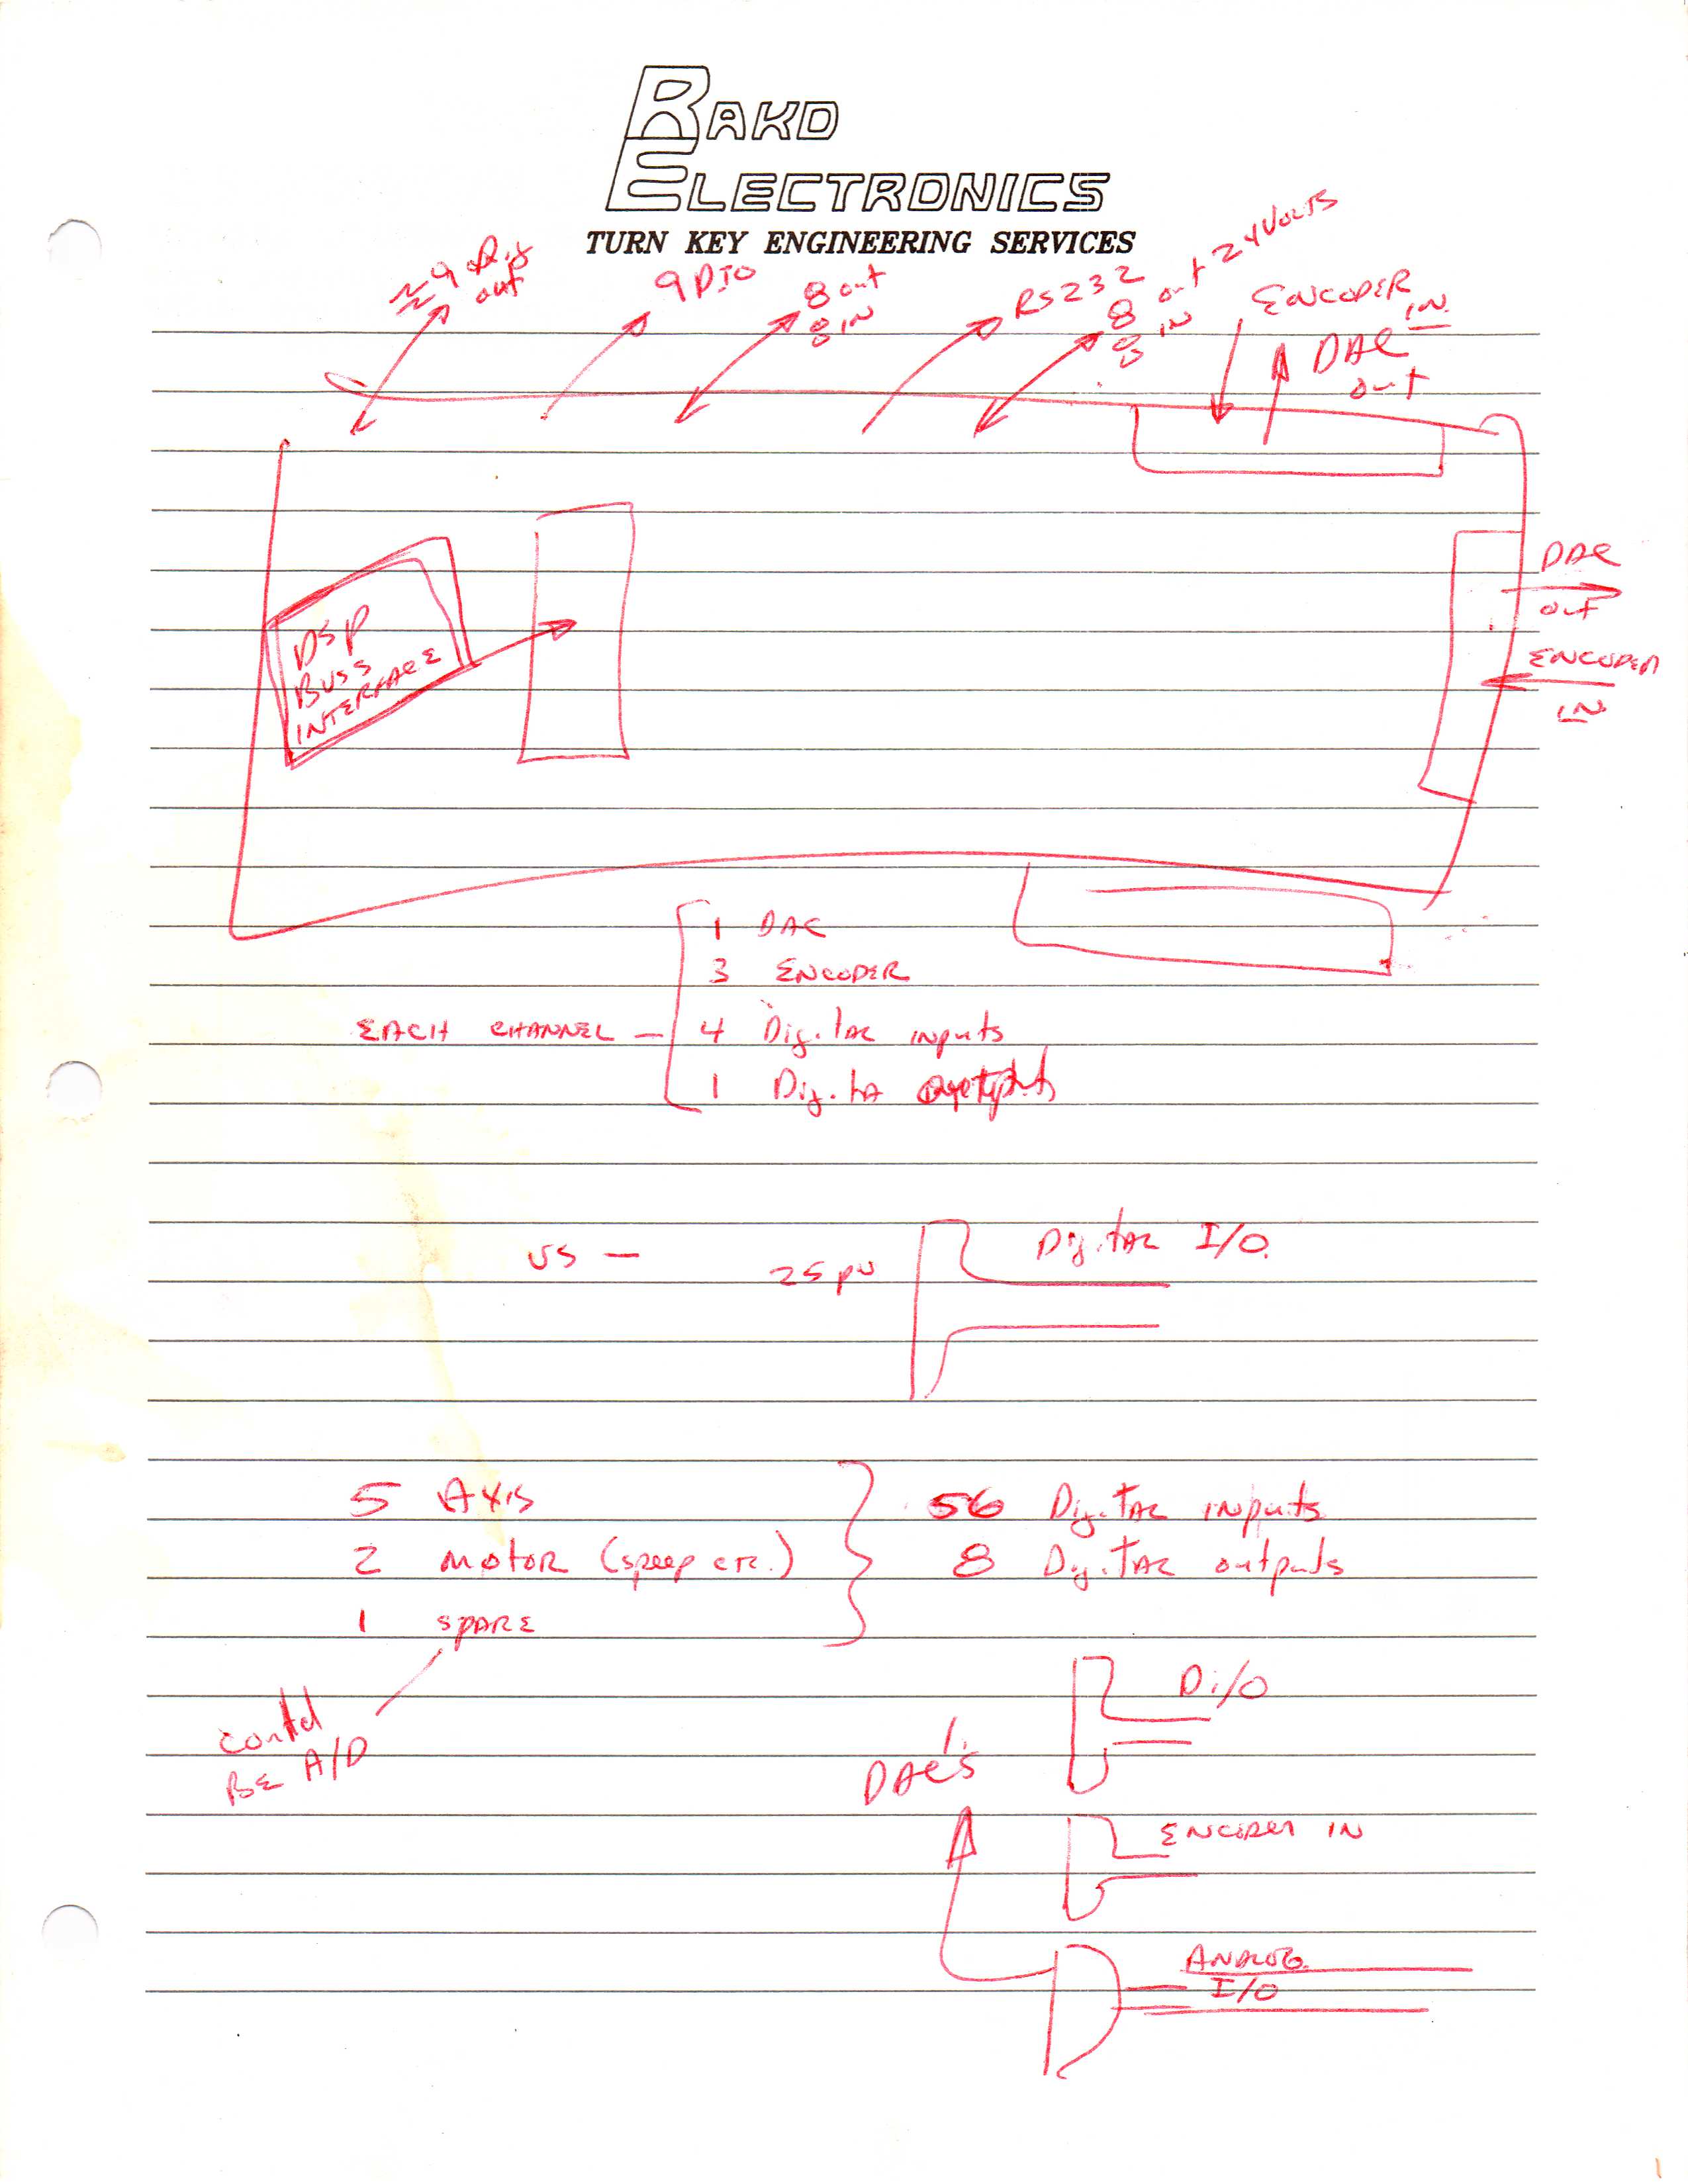 RAKO
ELECTRONICS
TURN KEY ENGINEERING SERVICES
Dig
out
9 DIO
8 out
8 IN
RS232
8 out 24 VOLTS
8 IN
ENCODER
IN
DAC
out
DSP
BUSS
INTERFACE
DAC
out
ENCODER
IN
1 DAC
3 ENCODER
EACH CHANNEL — 4 Digital inputs
1 Digita outputs
VS — 25 pin Digital I/O
5 AXIS 56 Digital inputs
2 MOTOR (speep etc.) 8 Digital outputs
1 SPARE
BE A/D
Di/O
DAC's
ENCODER IN
ANALOG
I/O